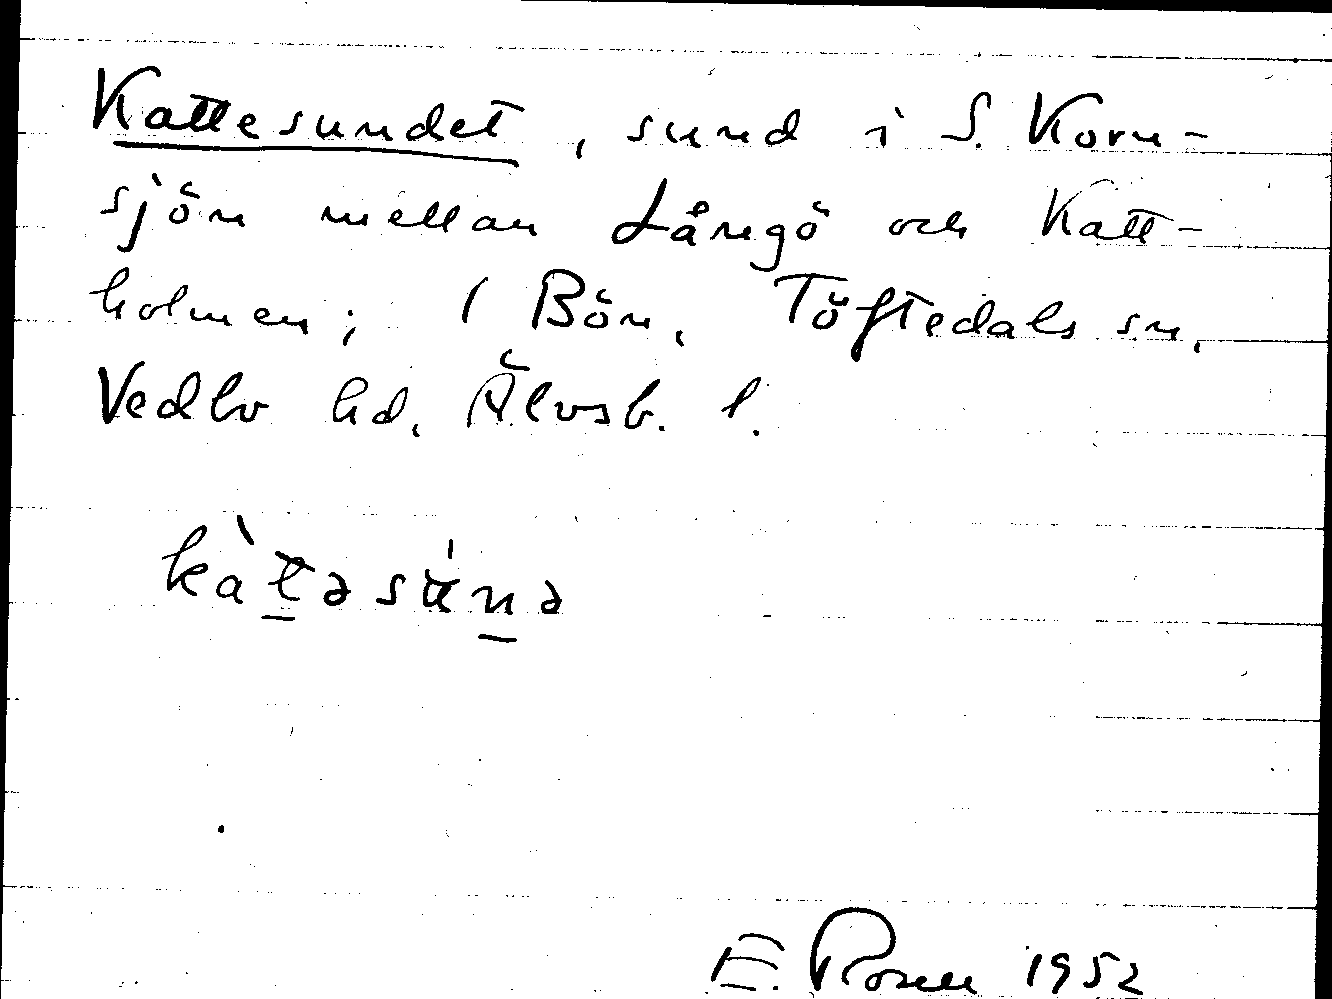 Kattesundet, sund i S. Korn-
sjön mellan Långö och Katt-
holmen; 1 Bön, Töftedals sn,
Vedbo hd, Älvsb. l.
kàt̲əsún̲ə
E. Rosell 1952